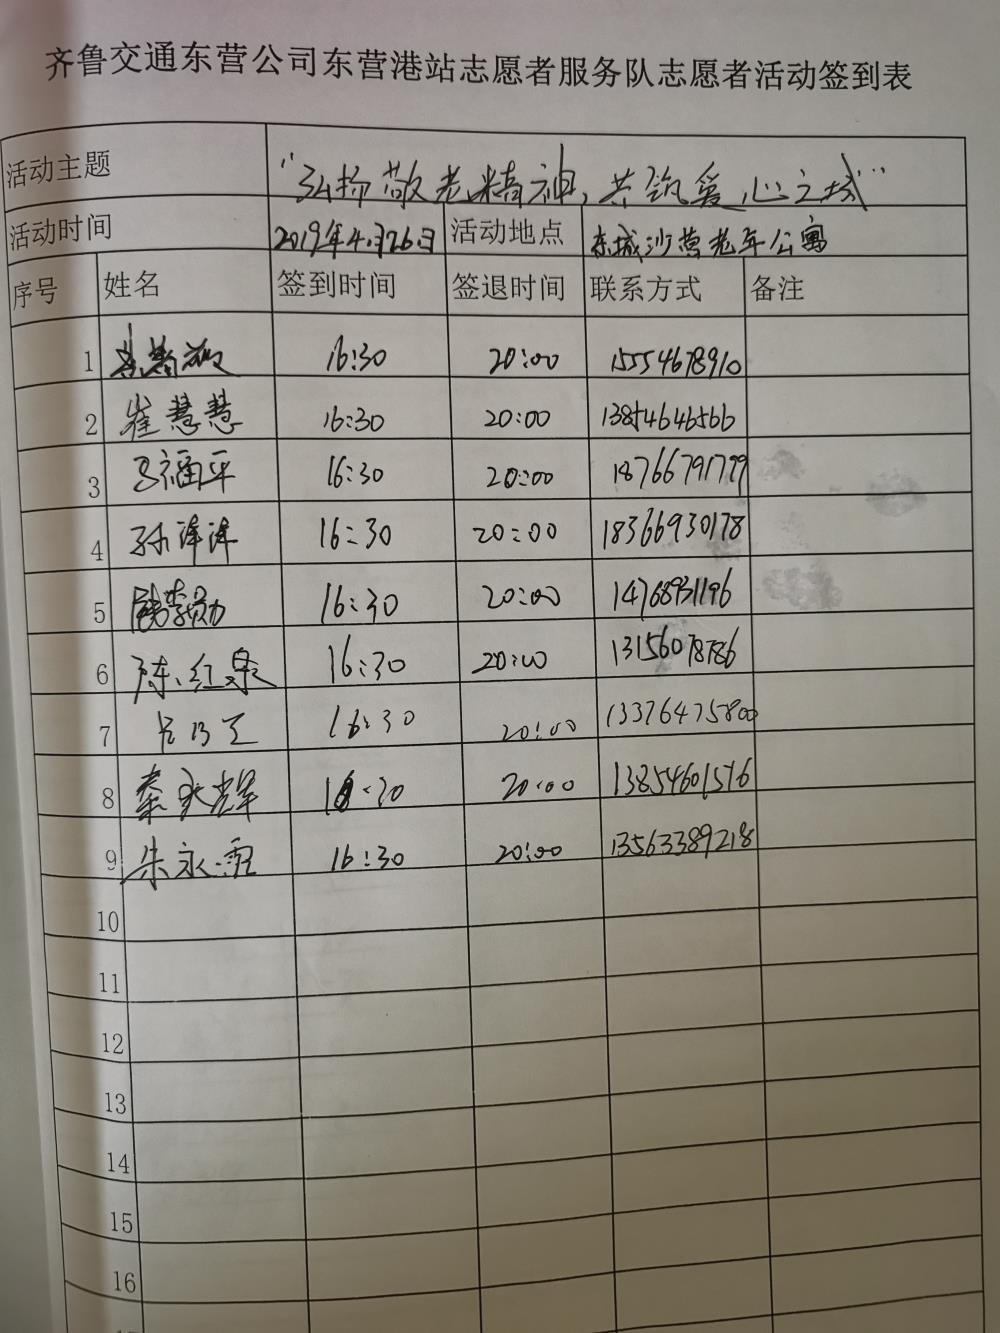 齐鲁交通东营公司东营港站志愿者服务队志愿者活动签到表
活动主题 “弘扬敬老精神，共筑爱心之城”
活动时间 2019年4月26日 活动地点 东城沙营老年公寓
序号 姓名 签到时间 签退时间 联系方式 备注
1 16:30 20:00 15554678910
2 崔慧慧 16:30 20:00 13854646566
3 马福平 16:30 20:00 18766791779
4 孙洋洋 16:30 20:00 18366930178
5 16:30 20:00 14768931196
6 陈红泉 16:30 20:00 13156078786
7 16:30 20:00 13376475800
8 秦永辉 16:30 20:00 13854601576
9 朱永霞 16:30 20:00 13563389218
10
11
12
13
14
15
16